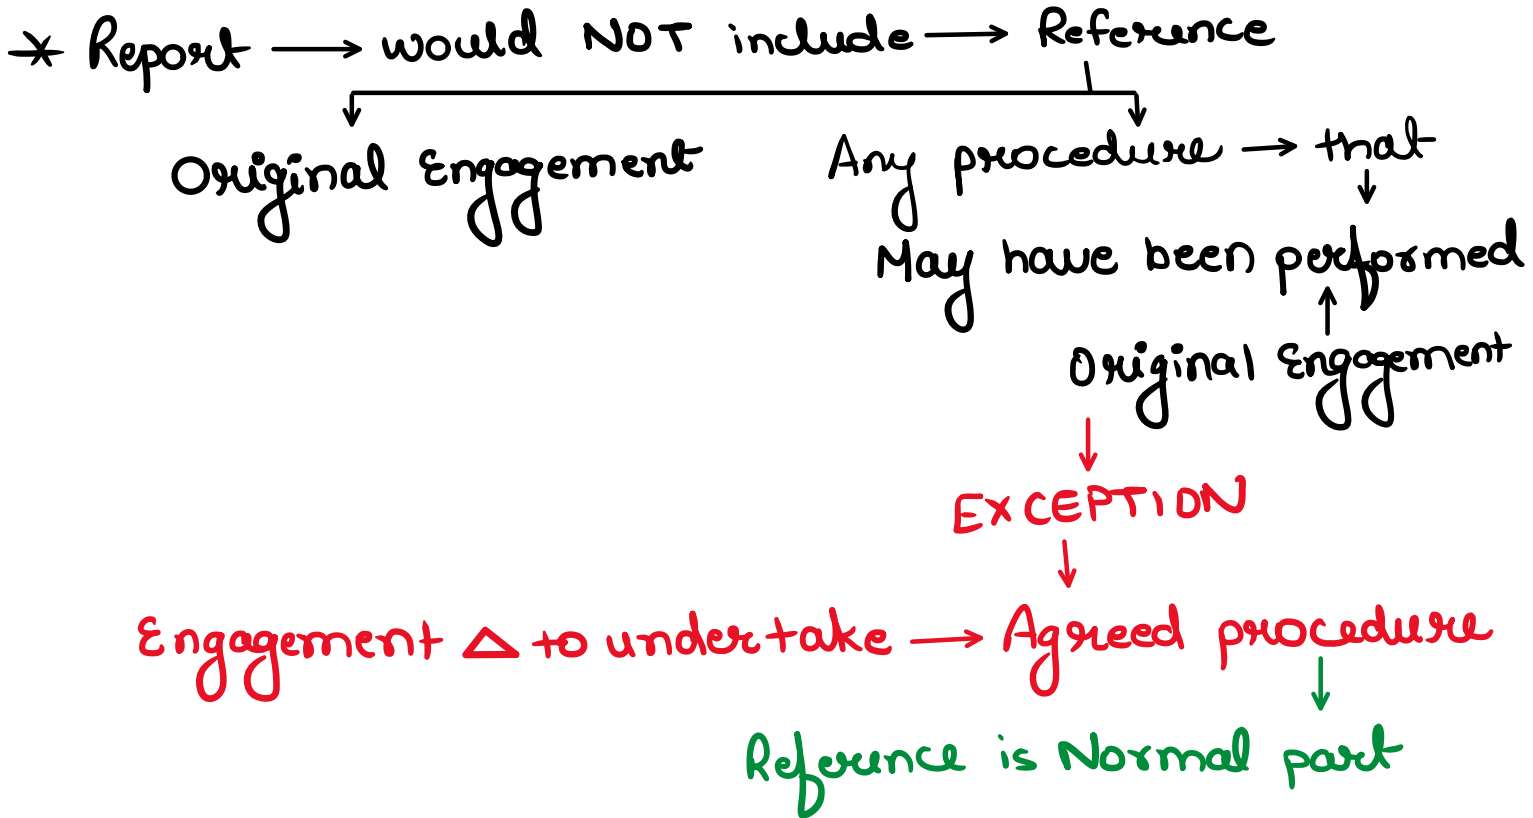 * Report → would NOT include → Reference
Original Engagement Any procedure → that
May have been performed
Original Engagement
EXCEPTION
Engagement Δ to undertake → Agreed procedure
Reference is Normal part